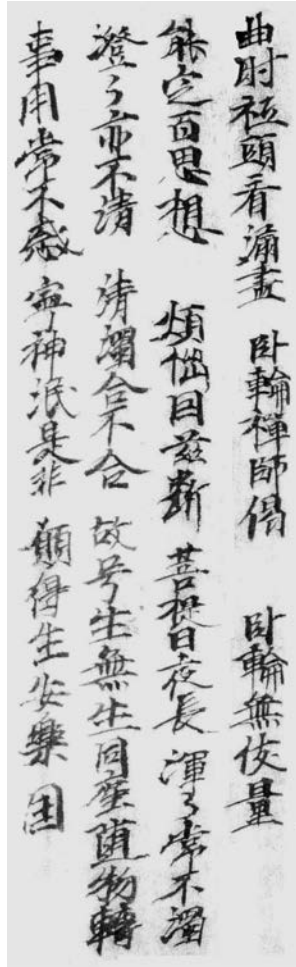 曲肘枕頭看漏盡 臥輪禪師偈 臥輪無伎量
能定百思想 煩惱因茲斷 菩提日夜長 渾々常不濁
澄々亦不清 清濁合不合 故号生無生 同塵隨物轉
事用常不惑 寧神泯是非 願得生安樂 国